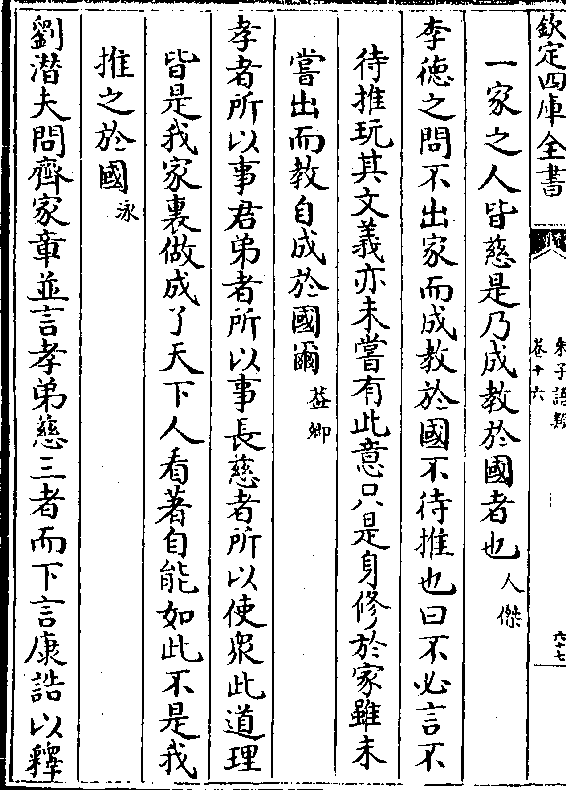 欽定四庫全書
朱子語類
卷十六
六十七
一家之人皆慈是乃成教於國者也人傑
李德之問不出家而成教於國不待推也曰不必言不
待推玩其文義亦未嘗有此意只是身修於家雖未
嘗出而教自成於國爾蓋卿
孝者所以事君弟者所以事長慈者所以使衆此道理
皆是我家裏做成了天下人看著自能如此不是我
推之於國泳
劉潛夫問齊家章並言孝弟慈三者而下言康誥以釋